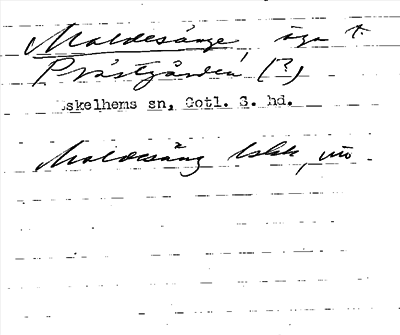 Moldesänge, äga t.
Prästgården (?)
skelhems sn, Gotl. S. hd.
Moldesäng